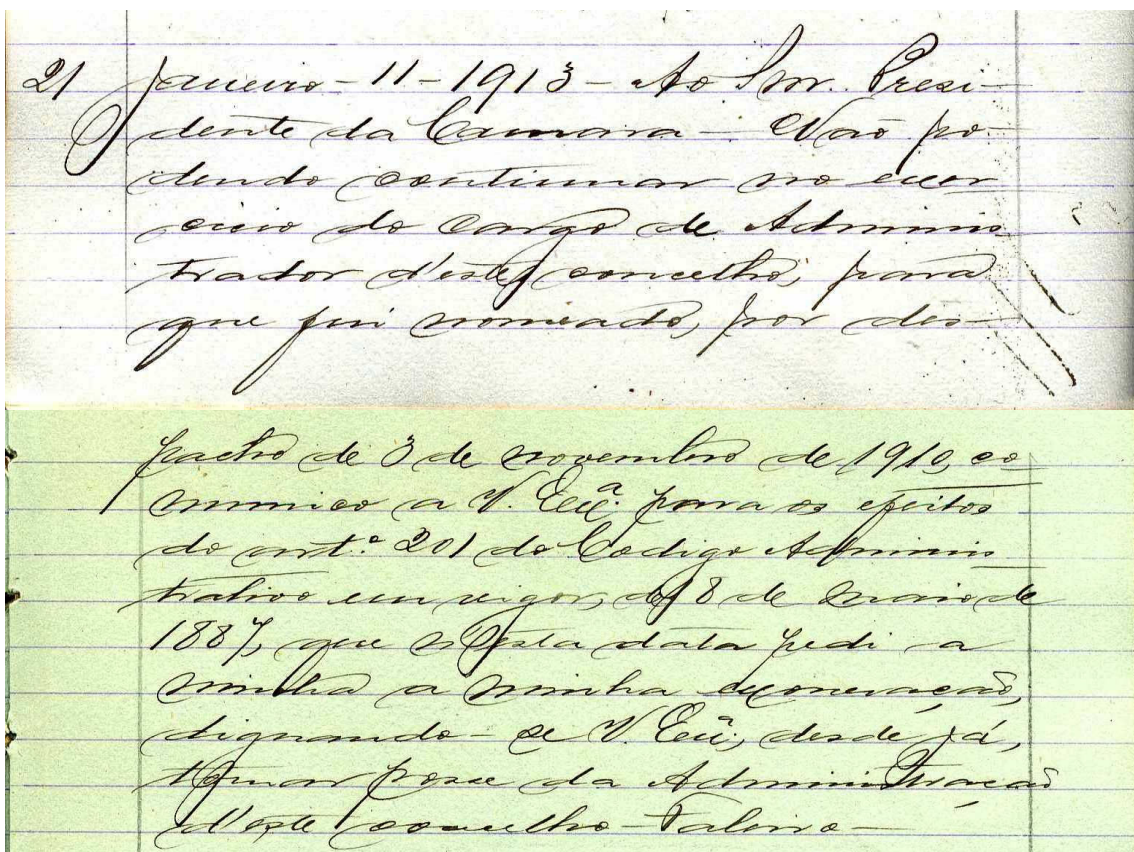 21 Janeiro - 11 - 1913 - Ao Snr. Presi-
dente da Camara - Não po-
dendo continuar no exer
cicio do cargo de Adminis-
trador d'este concelho, para
que fui nomeado, por des-
pacho de 3 de novembro de 1910, co-
munico a V. Exª. para os efeitos
do artº 201 do Codigo Adminis
trativo em vigor, de 18 de maio de
1887, que n'esta data pedi a
minha a minha exoneração,
dignando-se V. Exª., desde já,
tomar posse da Administração
d'este concelho -